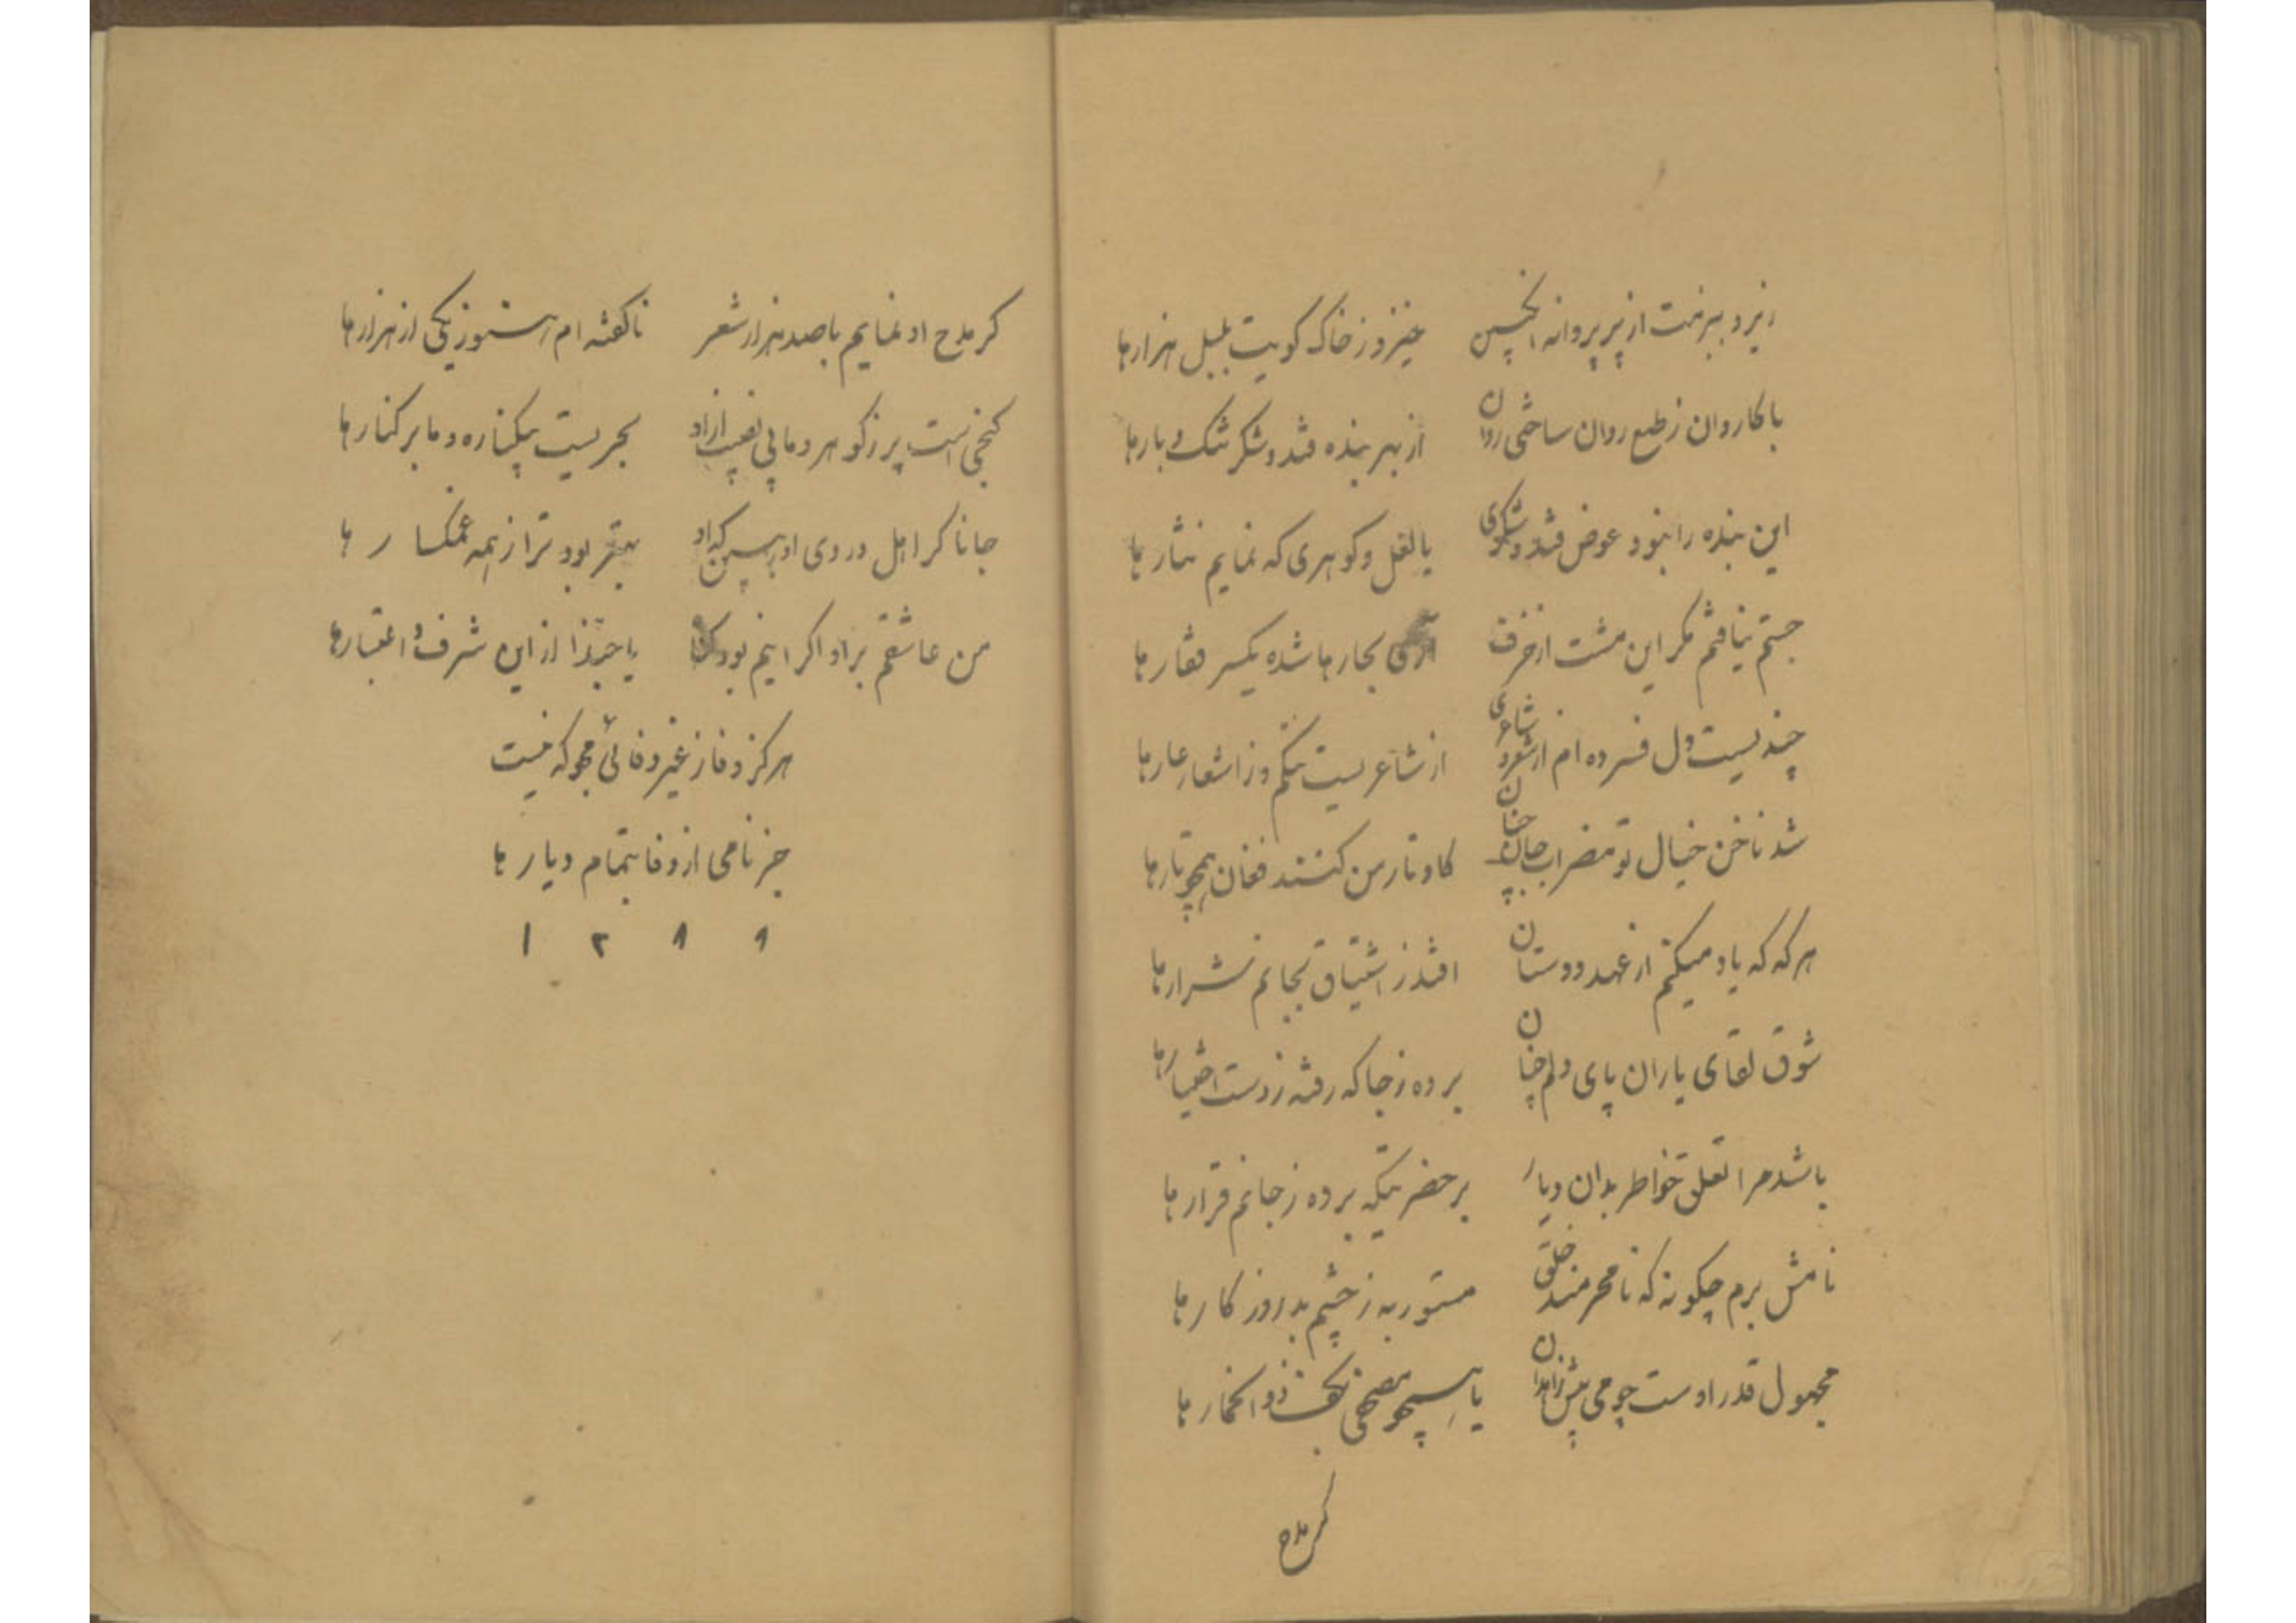 ریزد ببزمت از پر پروانه انجمن خیزد ز خاک کویت بلبل هزارها
با کاروان ز طبع روان ساختی روان از بهر بنده قند و شکر تنگ و بارها
این بنده را نبود عوض قند و شکری یا لعل و کوهری که نمایم نثارها
جستم نیافتم مکر این مشت از خزف بجارها شده یکسر قفارها
چندیست دل فسرده ام از شعر و شاعری از شاعریست ننکم و ز اشعار عارها
شد ناخن خیال تو مضراب جان چنان کاوتار من کنند فغان همچو تارها
هر که که یاد میکنم از عهد دوستان افتد ز اشتیاق بجانم شرارها
شوق لقای یاران پای دلم چنان برده ز جا که رفته ز دست اختیارها
باشد مرا تعلق خواطر بدان دیار بر حضرتیکه برده ز جانم قرارها
نامش برم چکونه که نامحرمند خلق مستور به ز چشم بد روزکارها
مجهول قدر اوست چو می پیش زاهدان یا همچو مصحفی بکف ذو الخمارها
کر مدح
کر مدح او نمایم با صد هزار شعر ناکفته ام هنوز یکی از هزارها
کنجی است پر ز کوهر و ما بی نصیب ازاو بحریست بیکناره و ما بر کنارها
جانا کر اهل دردی او بس کراو بهتر بود ترا ز همه غمکسارها
من عاشقم براو اکر اینم بود یا حبذا از این شرف و اعتبارها
هرکز وفا ز غیر وفائی مجو که نیست
جز نامی از وفا بتمام دیارها
۱ ۲ ۸ ۹